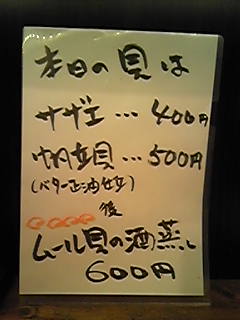 本日の貝は
サザエ…400円
帆立貝…500円
(バター正油焼)
後
ムール貝の酒蒸し
600円